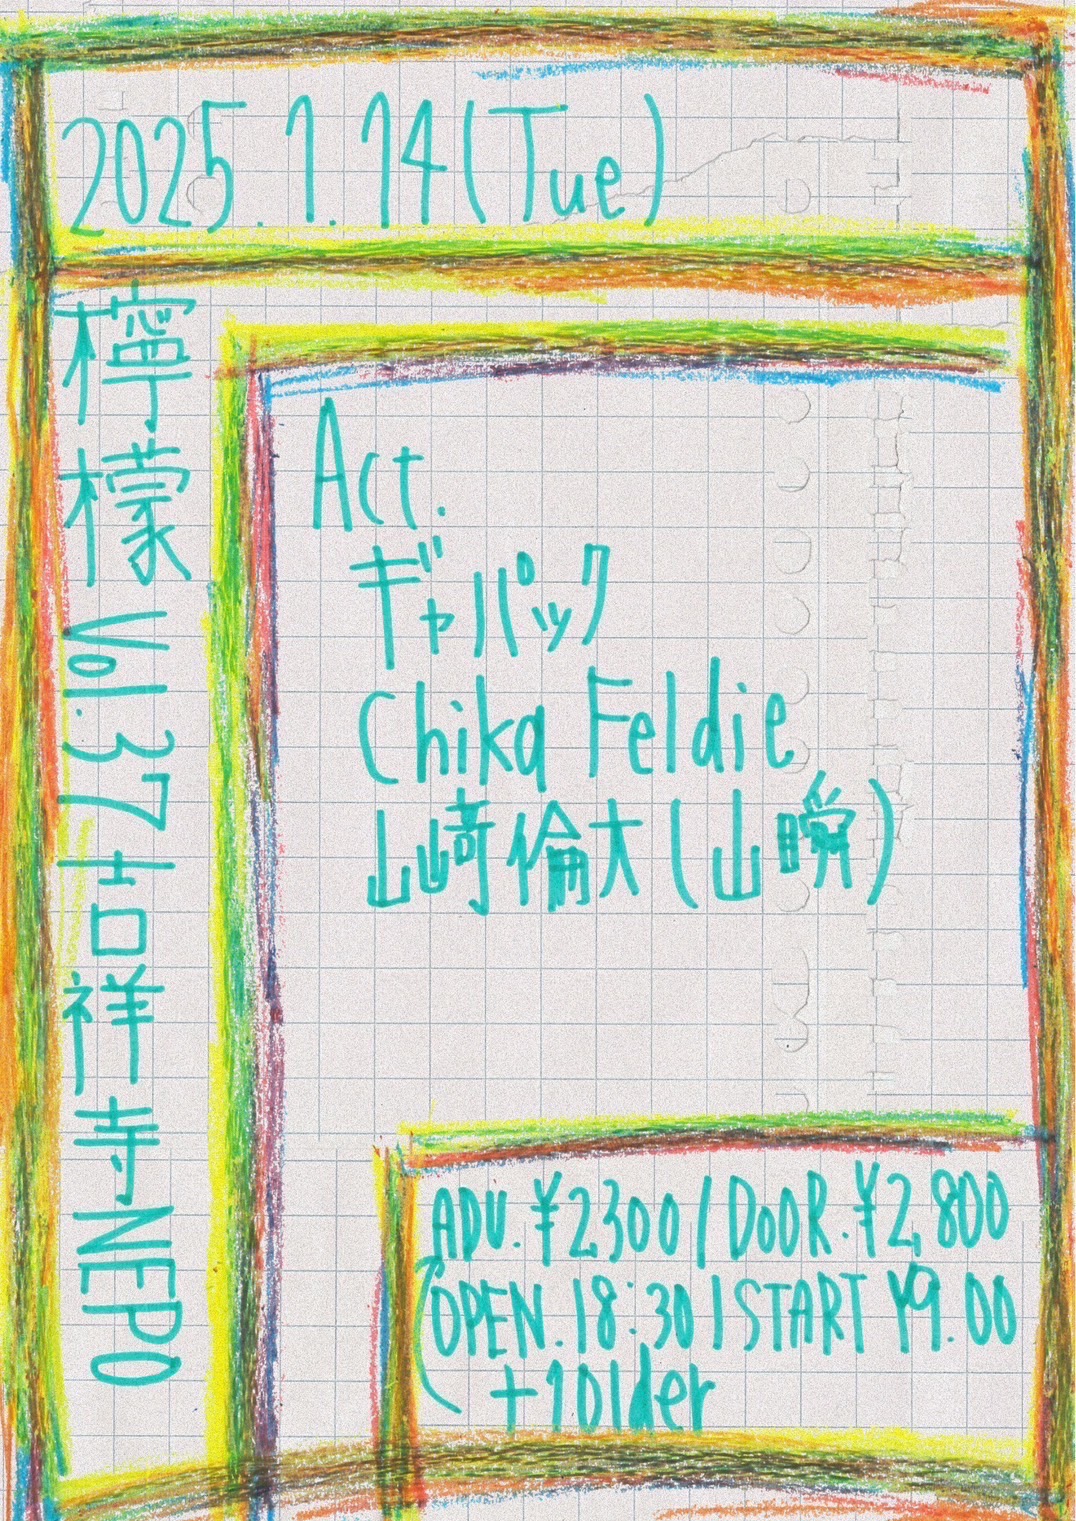 2025.1.14(Tue)
檸檬 Vol.37 吉祥寺NEPO
Act.
ギャパック
Chika Feldie
山崎倫大(山瞬)
ADV.¥2300/DOOR.¥2,800
OPEN.18:30/START 19.00
+1Older